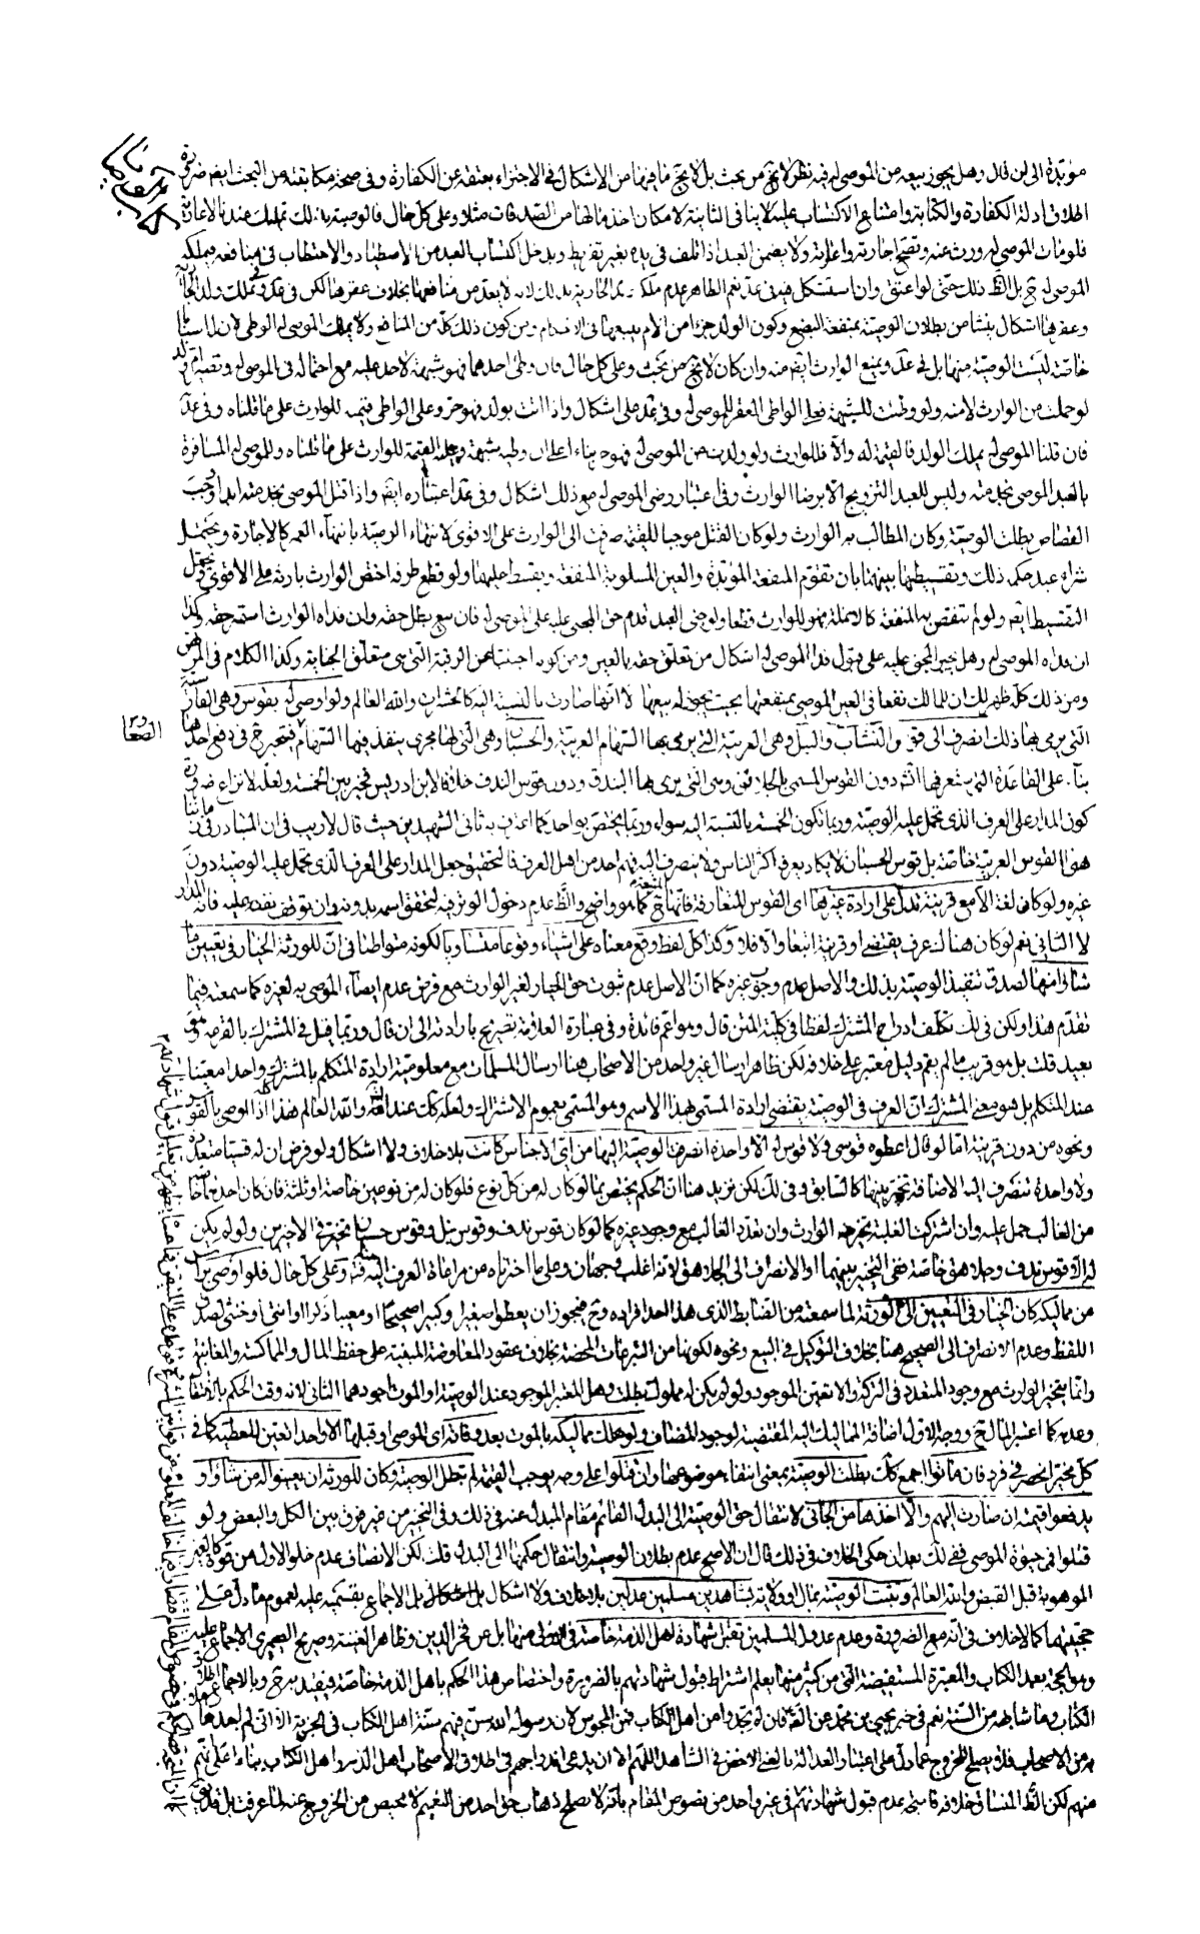 مؤبدة الى ان قال وهل يجوز بيعه من الموصى له فيه نظر لا يخ من بحث بل لا يخ ما فيها من الاشكال في الاجتزاء بعتقه عن الكفارة وفى صحة مكاتبته من البحث ايضا ضرورة
اطلاق ادلة الكفارة والكتابة وامتناع الاكتساب عليه لا ينافى الثانية لامكان اخذ مالها من الصدقات مثلا وعلى كل حال فالوصية بذلك تمليك عندنا لا اعارة
فلو مات الموصى له ورث عنه وتصح اجارته واعارته ولا يضمن العبد اذا تلف فى يده بغير تفريط ويدخل اكتساب العبد من الاصطياد والاحتطاب فى منافعه فيملكه
الموصى له ح بل الظ ذلك حتى لو اعتق وان استشكل فيه فى عد نعم الظاهر عدم ملك ولد الجارية بذلك لانه لا يعد من منافعها بخلاف عقرها لكن فى عد وفى تملك ولد الجارية
وعقرها اشكال ينشأ من بطلان الوصية بمنفعة البضع وكون الولد جزءا من الام يتبعها فى الاحكام ومن كون ذلك كله من المنافع ولا يملك الموصى له الوطى لان
خاصة ليست الوصية منها بل فى عد ويمنع الوارث ايضا منه وان كان لا يخ من بحث وعلى كل حال فان وطئ احدهما فهو شبهة لا حد عليه مع احتماله فى الموصى له وتصير ام ولد
لو حملت من الوارث لا منه ولو وطئت للشبهة فعلى الواطى العقر للموصى له وفى عد على اشكال واذا اتت بولد فهو حر وعلى الواطى قيمته للوارث على ما قلناه وفى عد
فان قلنا الموصى له يملك الولد فالقيمة له والا فللوارث ولو ولدت من الموصى له فهو حر بناء على ان وطيه شبهة وعليه القيمة للوارث على ما قلناه وللموصى له المسافرة
بالعبد الموصى بخدمته وليس للعبد التزويج الا برضا الوارث وفى اعتبار رضى الموصى له مع ذلك اشكال وفى عد اعتباره ايضا واذا قتل الموصى بخدمته ابدا وجب
القصاص بطلت الوصية وكان المطالب به الوارث ولو كان القتل موجبا للقيمة صرفت الى الوارث على الاقوى لانتهاء الوصية بانتهاء العمر كالاجارة ويحتمل
شراء عبد حكمه ذلك وتقسيطها بينهما بان تقوم المنفعة المؤبدة والعين المسلوبة المنفعة ويقسط عليهما ولو قطع طرفه اختص الوارث بارشه على الاقوى ويحتمل
التقسيط ايضا ولو لم تنقص به المنفعة كالانملة فهو للوارث قطعا ولو جنى العبد قدم حق المجنى عليه على الموصى له فان بيع بطل حقه وان فداه الوارث استمر حقه وكذا
ان فداه الموصى له وهل يجبر المجنى عليه على قبول فداء الموصى له اشكال من تعلق حقه بالعين ومن كونه اجنبيا عن الرقبة التى هى متعلق الجناية وكذا الكلام فى المرتهن
ومن ذلك كله ظهر لك ان للمالك نفعا فى العين الموصى بمنفعتها بحيث يجوز له بيعها لا انها صارت بالنسبة اليه كالحشرات والله العالم ولو اوصى له بقوس وهى القارة
التى يرمى بها ذلك انصرف الى قوس النشاب والنبل وهى العربية التى يرمى بها السهام العربية والحسبان وهى التى لها مجرى ينفذ فيها السهام فيتخير ح فى دفع احدها
بناء على القاعدة التى ستعرفها انشء دون القوس المسمى بالجلاهق وهى التى يرمى بها البندق ودون قوس الندف خلافا لابن ادريس فخير بين الخمسة ولعله لا نزاع ضرورة
كون المدار على العرف الذى تحمل عليه الوصية وربما تكون الخمسة بالنسبة اليه سواء وربما يختص بواحد كما اعترف به ثانى الشهيدين حيث قال لا ريب فى ان المتبادر فى زماننا
هذا القوس العربية خاصة بل قوس الحسبان لا يكاد يعرفه اكثر الناس ولا ينصرف اليه فهم احد من اهل العرف فالتحقيق جعل المدار على العرف الذى تحمل عليه الوصية دون
غيره ولو كان لغة الا مع قرينة تدل على ارادة غيرها اى القوس المتعارفة فانها ح كما هو واضح والظ عدم دخول الوتر فيه لتحقق اسمه بدونه وان توقف نفعه عليه فانه المدار
لا الثانى نعم لو كان هناك عرف يقتضيه او قرينة اتبعا والا فلا وكذا كل لفظ وقع معناه على اشياء وقوعا متساويا لكونه متواطئا فى ان للورثة الخيار فى تعيين ما
شاؤا منها لصدق تنفيذ الوصية بذلك والاصل عدم وجوب غيره كما ان الاصل عدم ثبوت حق الخيار لغير الوارث مع فرض عدم ايصاء الموصى به لغيره كما سمعته فيما
تقدم هذا ولكن فى لك تكلف ادراج المشترك لفظا فى كلية المتن قال وهو اعم فائدة وفى عبارة العلامة تصريح بارادته الى ان قال وربما قيل فى المشترك بالقرعة وهو
بعيد قلت بل هو قريب ما لم يقم دليل معتبر على خلافه لكن ظاهر ارسال غير واحد من الاصحاب هنا ارسال المسلمات مع معلومية ارادة المتكلم بالمشترك واحدا معينا
عند المتكلم بل هو معنى المشترك ان العرف فى الوصية يقتضى ارادة المسمى بهذا الاسم وهو المسمى بعموم الاشتراك ولعله كك عند العامة والله العالم هذا اذا اوصى بالقوس
ونحوه من دون قرينة اما لو قال اعطوه قوسى ولا قوس له الا واحدة انصرفت الوصية اليها من اى الاجناس كانت بلا خلاف ولا اشكال ولو فرض ان له قسيا متعددة
ولا واحدة تنصرف اليه الاضافة تخير بينها كالسابق وفى لك لكن نزيد هنا ان الحكم يختص بما لو كان له من كل نوع فلو كان له من نوعين خاصة او ثلثة فان كان احدها خاصة
من الغالب حمل عليه وان اشتركت الغلبة تخير الوارث وان تعدد الغالب مع وجود غيره كما لو كان قوس ندف وقوس نبل وقوس حسبان تخير فى الاخيرين ولو لم يكن
له الا قوس ندف وجلاهق خاصة ففى التخيير بينهما او الانصراف الى الجلاهق لانه اغلب وجهان وعلى ما اخترناه من مراعاة العرف اليه فيه وعلى كل حال فلو اوصى براس
من مماليكه كان الخيار فى التعيين الى الورثة لما سمعته من الضابط الذى هذا احد افراده وح فيجوز ان يعطوا صغيرا وكبيرا صحيحا او معيبا ذكرا او انثى او خنثى لصدق
اللفظ وعدم الانصراف الى الصحيح هنا بخلاف التوكيل فى البيع ونحوه لكونها من التبرعات المحضة بخلاف عقود المعاوضة المبنية على حفظ المال والمماكسة والمغابنة
وانما يتخير الوارث مع وجود المتعدد فى التركة والا تعين الموجود ولو لم يكن له مملوك بطلت وهل المعتبر الموجود عند الوصية او الموت اجودهما الثانى لانه وقت الحكم بالانتقال
وعدمه كما اعتبر المال ح ووجه الاول اضافة المماليك اليه المقتضية لوجود المضاف ولو هلك مماليكه بالموت بعد وفاته اى الموصى او قبلها الا واحدا تعين للعطية كما فى
كل مخير انحصر فى فرد فان ماتوا اجمع كك بطلت الوصية بمعنى انتفاء موضوعها وان قتلوا على وجه يوجب القيمة لم تبطل الوصية وكان للورثة ان يعينوا له من شاؤا و
يدفعوا قيمته ان صارت اليهم والا اخذها من الجانى لانتقال حق الوصية الى البدل القائم مقام المبدل عنه فى ذلك وفى التخيير من غير فرق بين الكل والبعض ولو
قتلوا فى حيوة الموصى ففى لك بعد ان حكى الخلاف فى ذلك قال ان الاصح عدم بطلان الوصية وانتقال حكمها الى البدل قلت لكن الانصاف عدم خلو الاول من قوة كالعين
الموهوبة قبل القبض والله العالم وتثبت الوصية بمال او ولاية بشاهدين مسلمين عدلين بلا خلاف ولا اشكال بل الاجماع بقسميه عليه لعموم ما دل على
حجيتهما كما لا خلاف فى انه مع الضرورة وعدم عدول المسلمين تقبل شهادة اهل الذمة خاصة فى الاولى منهما بل عن فخر الدين وظاهر الغنية وصريح الصيمرى الاجماع عليه
وهو الحجة بعد الكتاب والمعتبرة المستفيضة التى من كثير منها يعلم اشتراط قبول شهادتهم بالضرورة واختصاص هذا الحكم باهل الذمة خاصة فيقيد به ح وبالاجماع اطلاق
الكتاب وما شابهه من السنة نعم فى خبر يحيى بن محمد عن الصادق فان لم تجدوا من اهل الكتاب فمن المجوس لان رسول الله سن فيهم سنة اهل الكتاب فى الجزية الا انى لم اجد
من الاصحاب فلا يصلح للخروج عما دل على اعتبار العدالة بالمعنى الاخص فى الشاهد اللهم الا ان يدعى اندراجهم فى اطلاق الاصحاب اهل الذمة واهل الكتاب بناء على انهم
منهم لكن الظ المنساق خلافه فالمتجه عدم قبول شهادتهم فى غير واحد من نصوص المقام بانه لا يصلح ذهاب حق احد من التعميم لا محيص من الخروج عنه لما عرفت